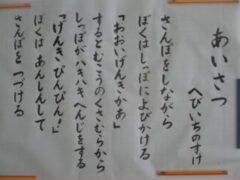 あいさつ
へびいちのすけ
さんぽをしながら
ぼくはしっぽによびかける
「おおいげんきかあ」
するとむこうのくさむらから
しっぽがハキハキへんじをする
「げんき・ぴんぴん!」
ぼくはあんしんして
さんぽを つづける